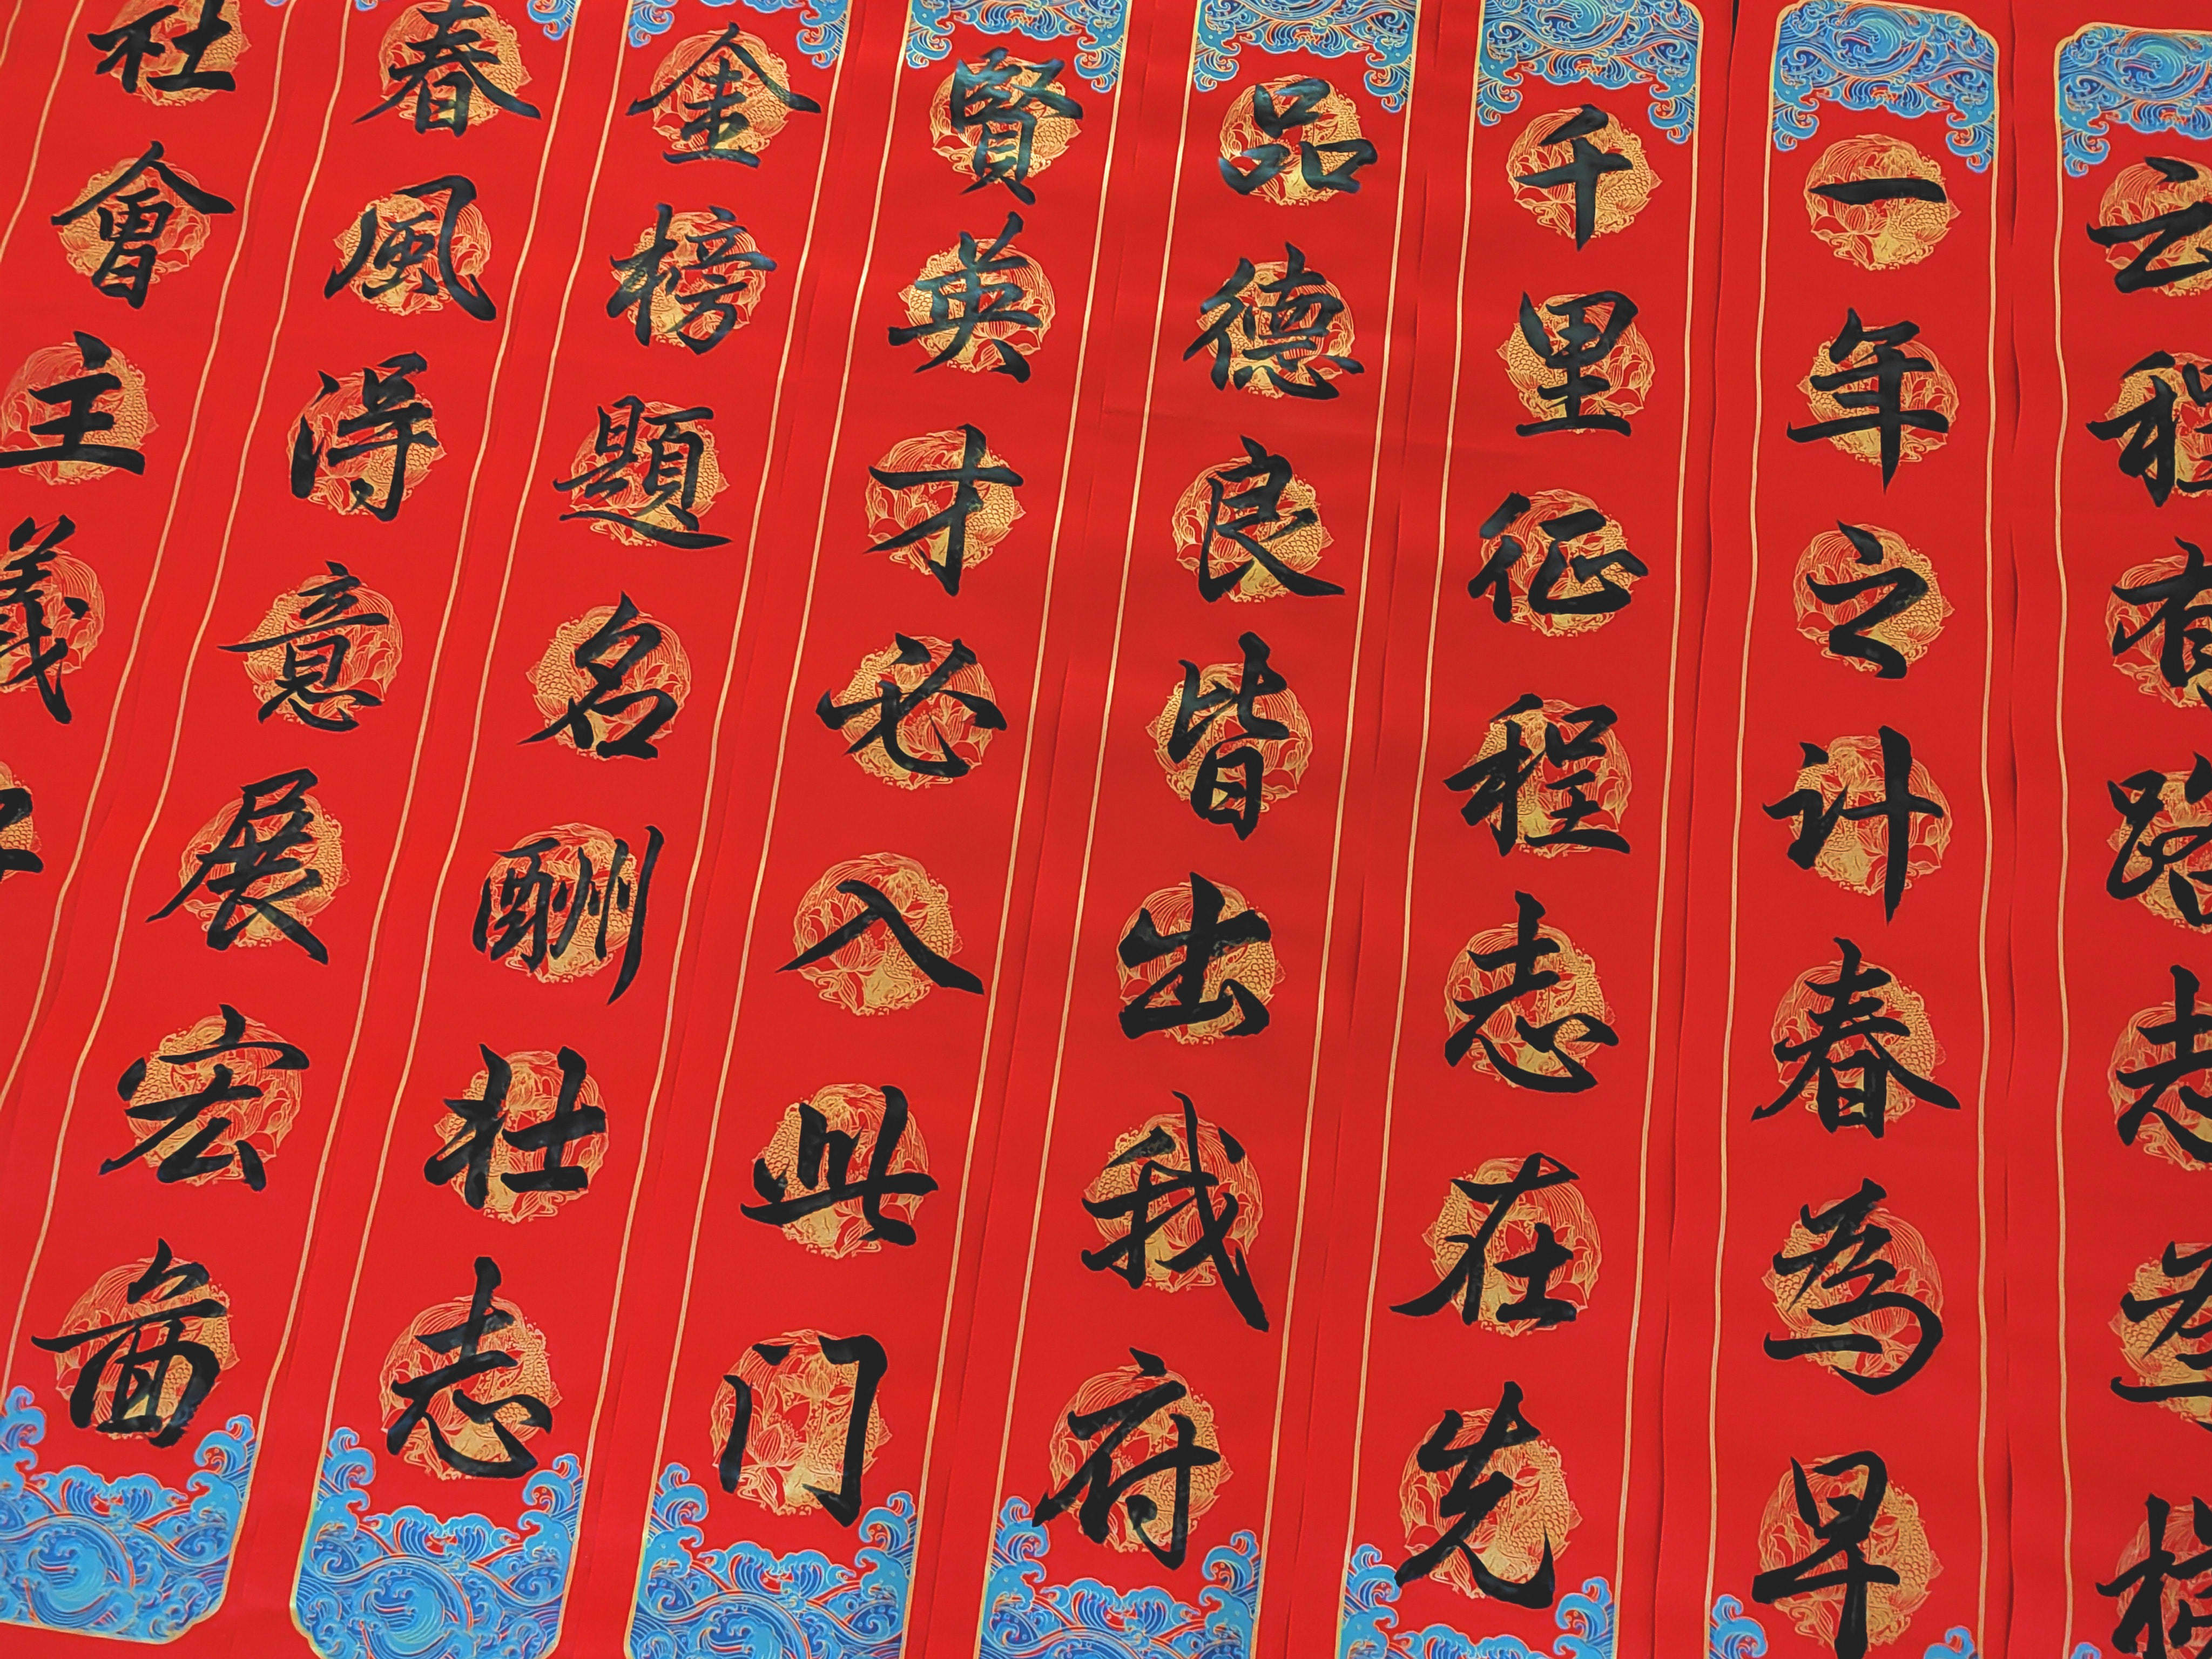 云程有路志
一年之计春為早
千里征程志在先
品德良皆出我府
賢英才必入此门
金榜題名酬壮志
春風得意展宏圖
社會主義